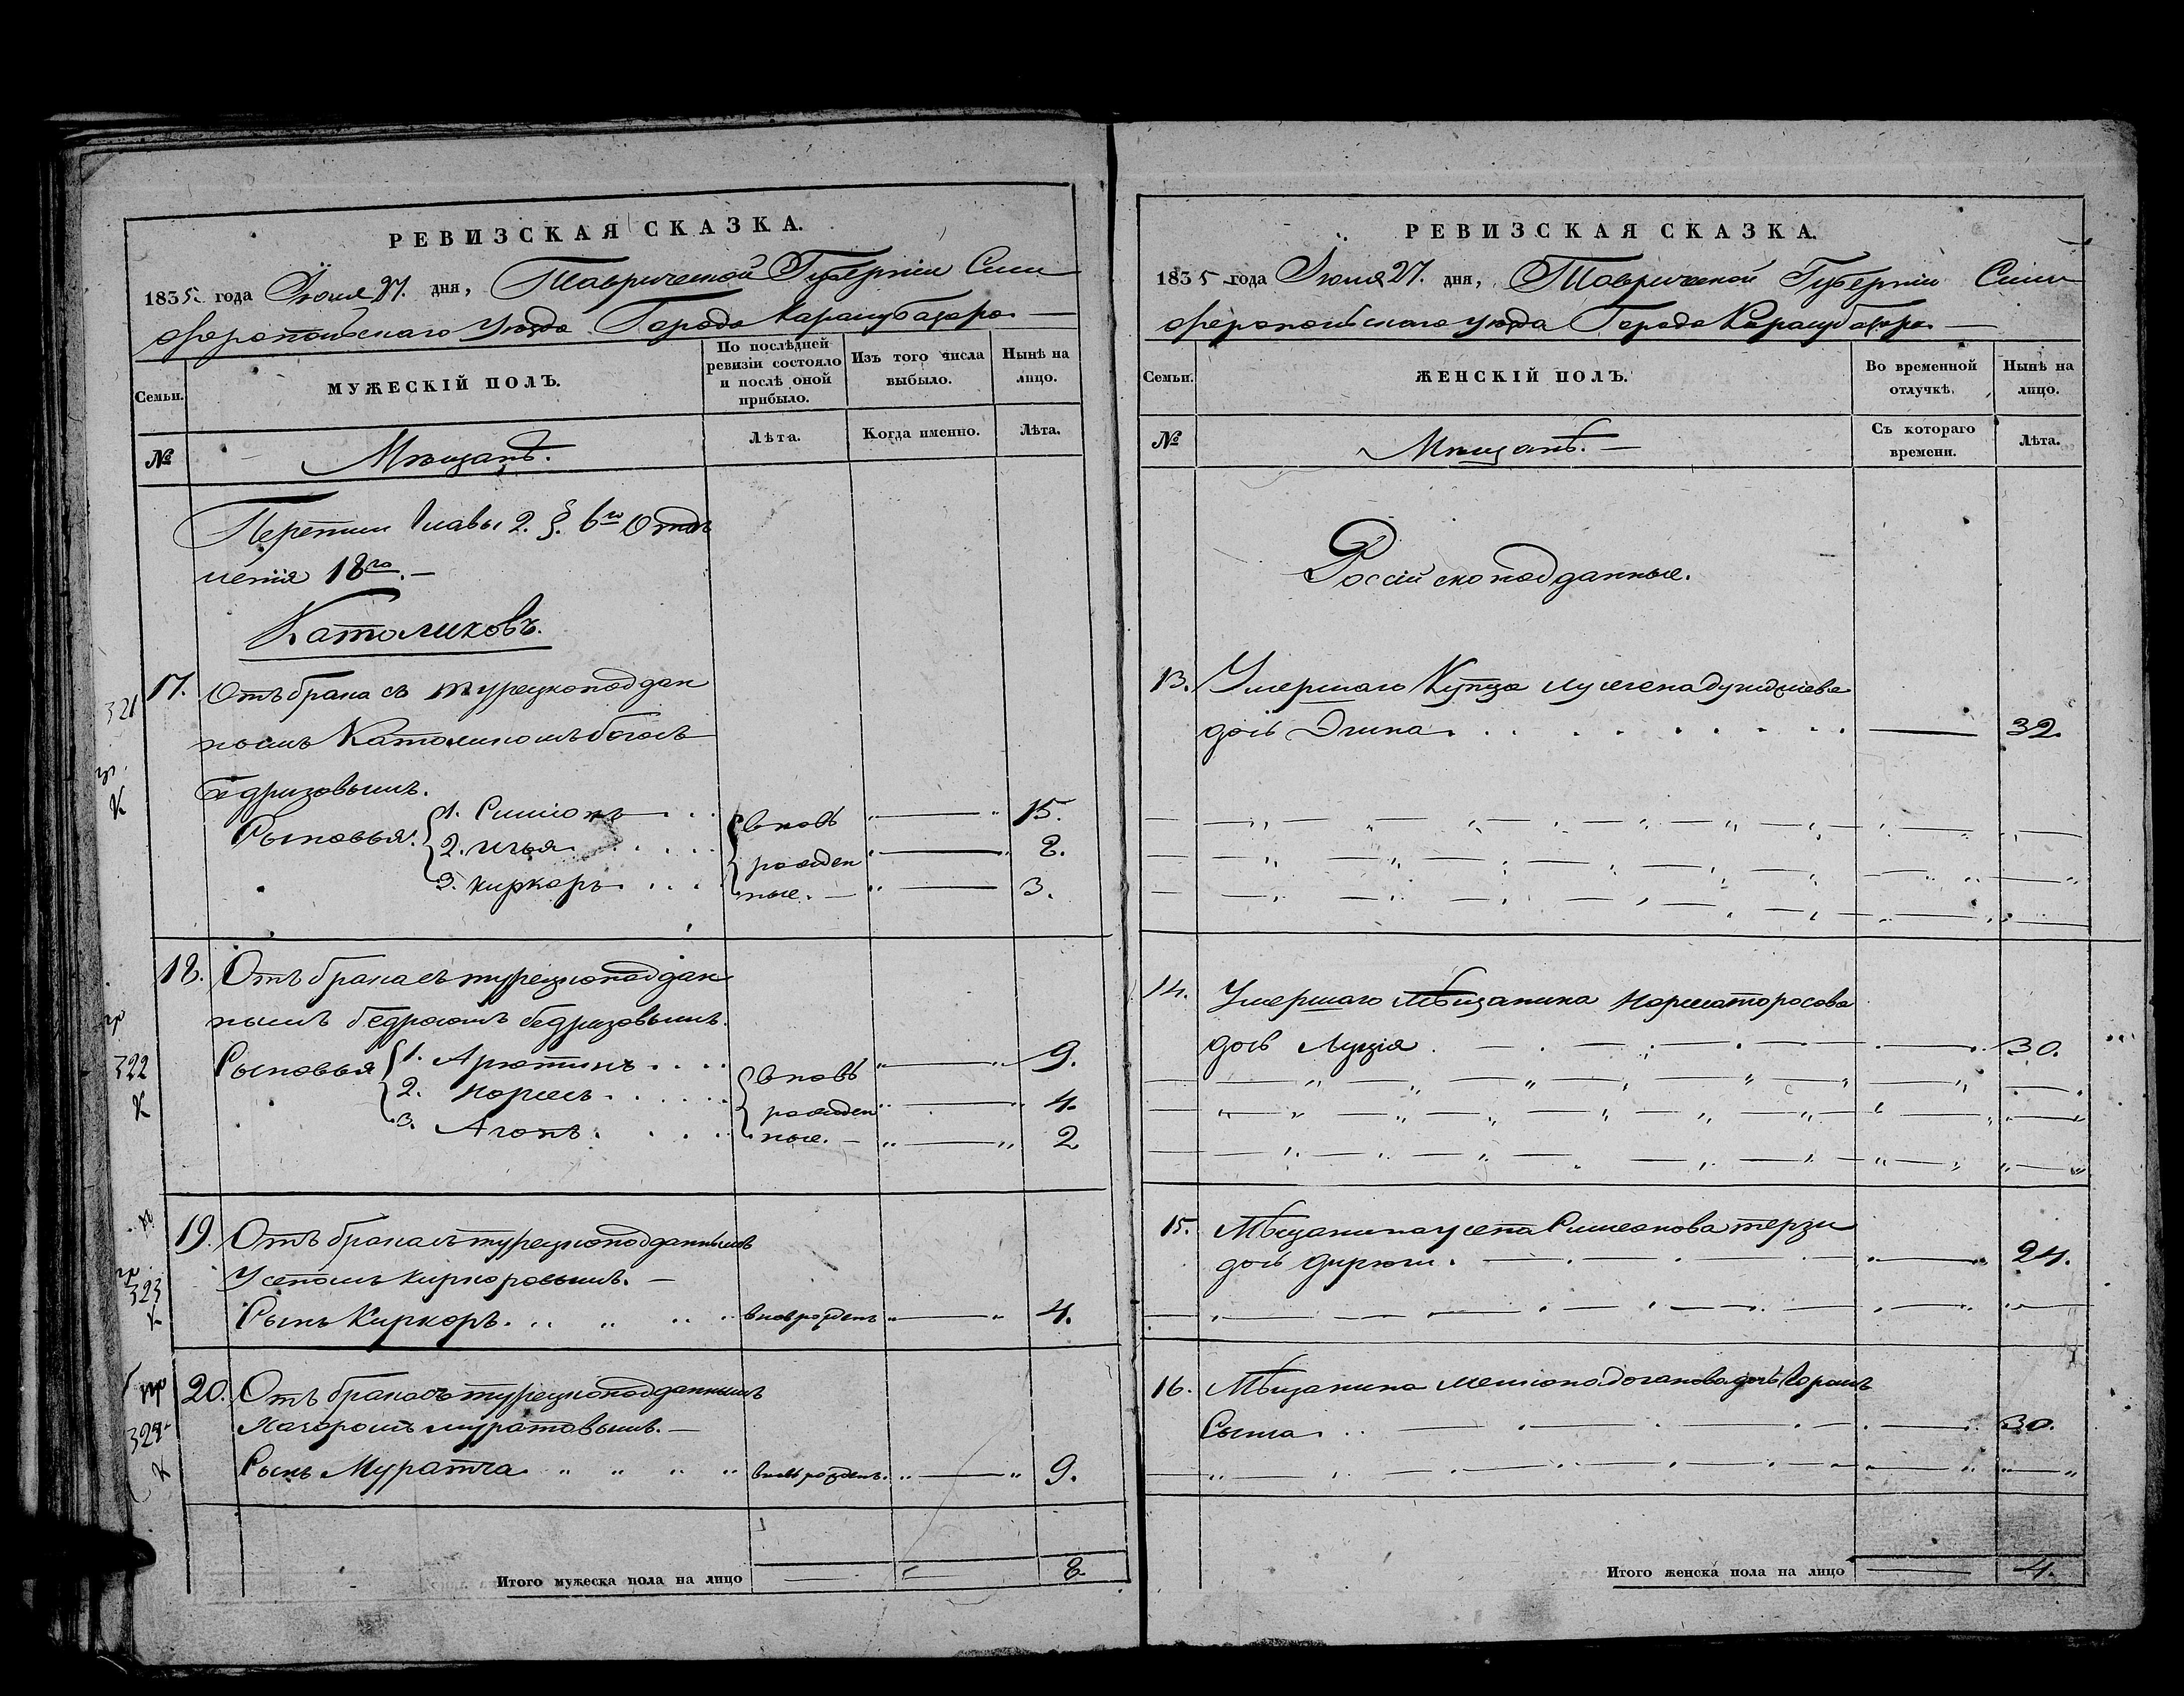 РЕВИЗСКАЯ СКАЗКА.
1835. года Іюня 27. дня, Таврической Губерніи Сим
феропольскаго Уѣзда Города Карасубазара —
Семьи.
МУЖЕСКІЙ ПОЛЪ.
По послѣдней ревизіи состояло и послѣ оной прибыло.
Изъ того числа выбыло.
Нынѣ на лицо.
№
Мѣщанъ.
Лѣта.
Когда именно.
Лѣта.
главы 2. §. 6го Отдѣ
ленія 18го. —
Католиковъ.
321
17. Отъ брака съ турецкоподдан
нымъ Католикомъ
Бедризовымъ.
Сыновья: 1. Симіонъ вновь 15.
2. Илья рожден 8.
3. Киркоръ ные. — 3.
18. Отъ брака съ турецкоподдан
нымъ Бедросомъ Бедризовымъ.
322
Сыновья 1. Арютинъ вновь 9.
2. рожден 4.
3. Агопъ ные. — 2
19. Отъ брака съ турецкоподданнымъ
323
Усепомъ Киркоровымъ. —
Сынъ Киркоръ вновь рожденъ 4.
20. Отъ брака съ турецкоподданнымъ
324
Муратовымъ. —
Сынъ Муратча вновь рожденъ. 9.
Итого мужеска пола на лицо 8.
РЕВИЗСКАЯ СКАЗКА.
1835 года Іюня 27. дня, Таврической Губерніи Сим
феропольскаго Уѣзда Города Карасубазара —
Семьи.
ЖЕНСКІЙ ПОЛЪ.
Во временной отлучкѣ.
Нынѣ на лицо.
№
Мѣщанъ. —
Съ котораго времени.
Лѣта.
Россійскоподданные.
13. Умершаго Купца
дочь 32.
14. Умершаго Мѣщанина
дочь Луція 30.
15. Мѣщанина Усепа Симеонова терзи
дочь 24.
16. Мѣщанина дочь
30.
Итого женска пола на лицо 4.